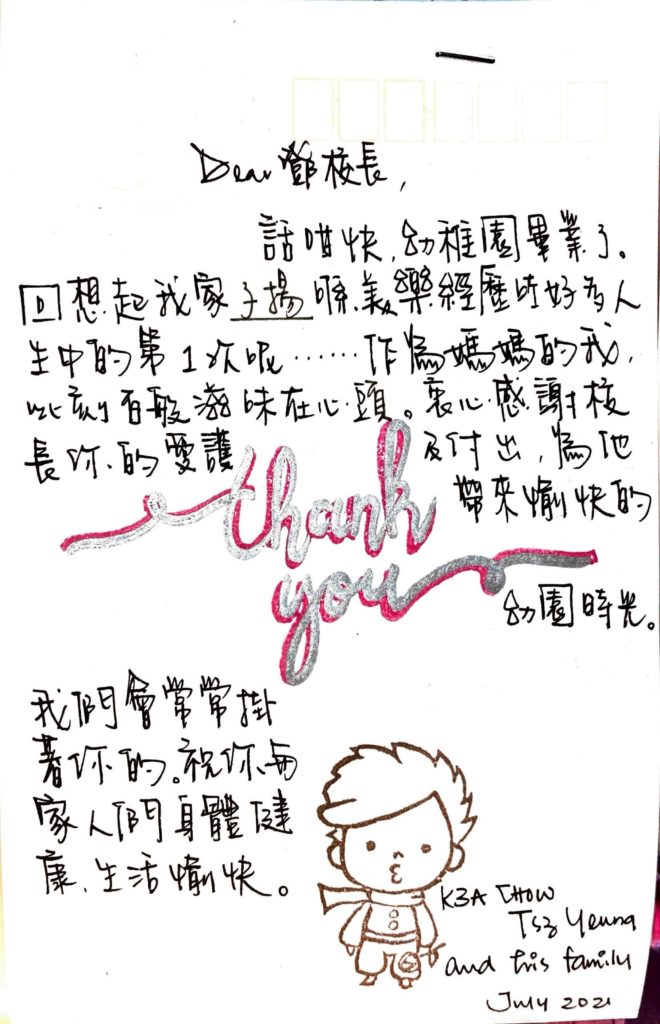 Dear 鄧校長,
話咁快,幼稚園畢業了。
回想起我家子揚喺美樂經歷咗好多人
生中的第1次呢……作為媽媽的我,
此刻百般滋味在心頭。衷心感謝校
長你的愛護及付出,為他
帶來愉快的
thank
you
幼園時光。
我們會常常掛
著你的。祝你與
家人們身體健
康、生活愉快。
K3A CHOW
Tsz Yeung
and his family
July 2021